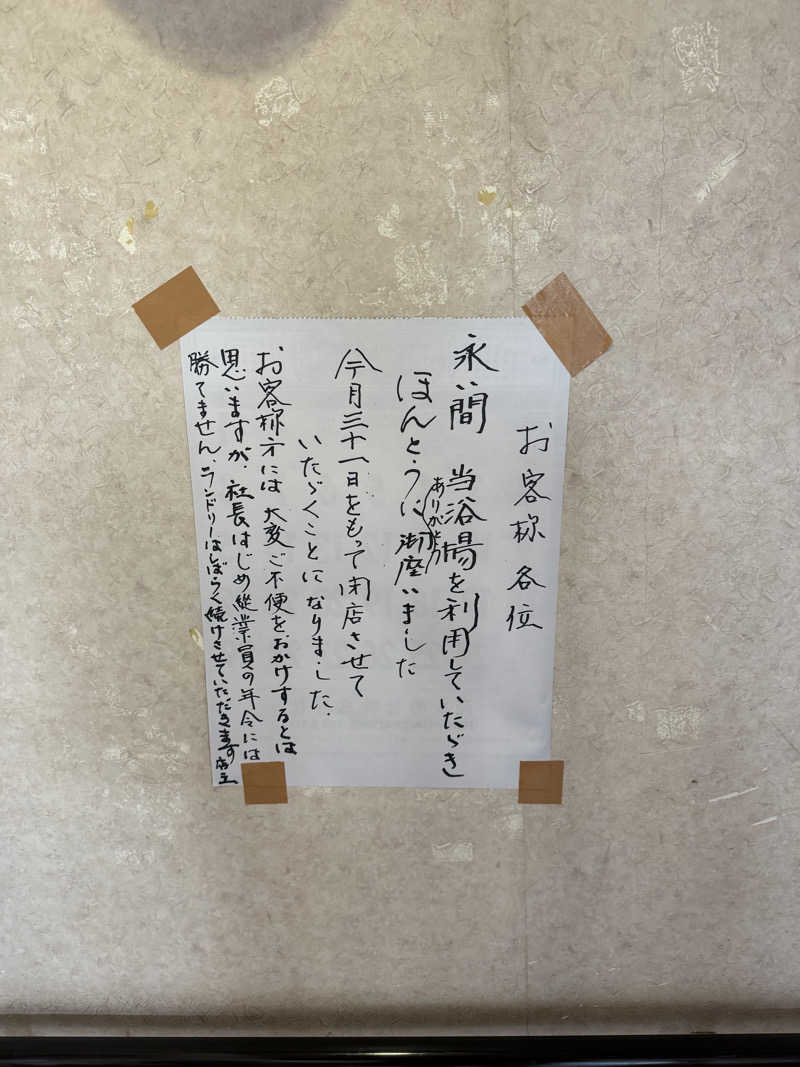 お客様各位
永い間 当浴場を利用していただき
ほんとうにありがとう御座いました
今月三十一日をもって閉店させて
いただくことになりました.
お客様方には大変ご不便をおかけするとは
思いますが、社長はじめ従業員の年令には
勝てません.ランドリーはしばらく続けさせていただきます 店主